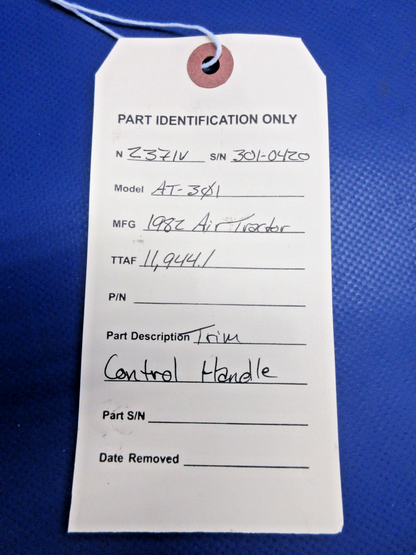 PART IDENTIFICATION ONLY
N 2371V S/N 301-0420
Model AT-301
MFG 1982 Air Tractor
TTAF 11,944.1
P/N
Part Description Trim
Control Handle
Part S/N
Date Removed